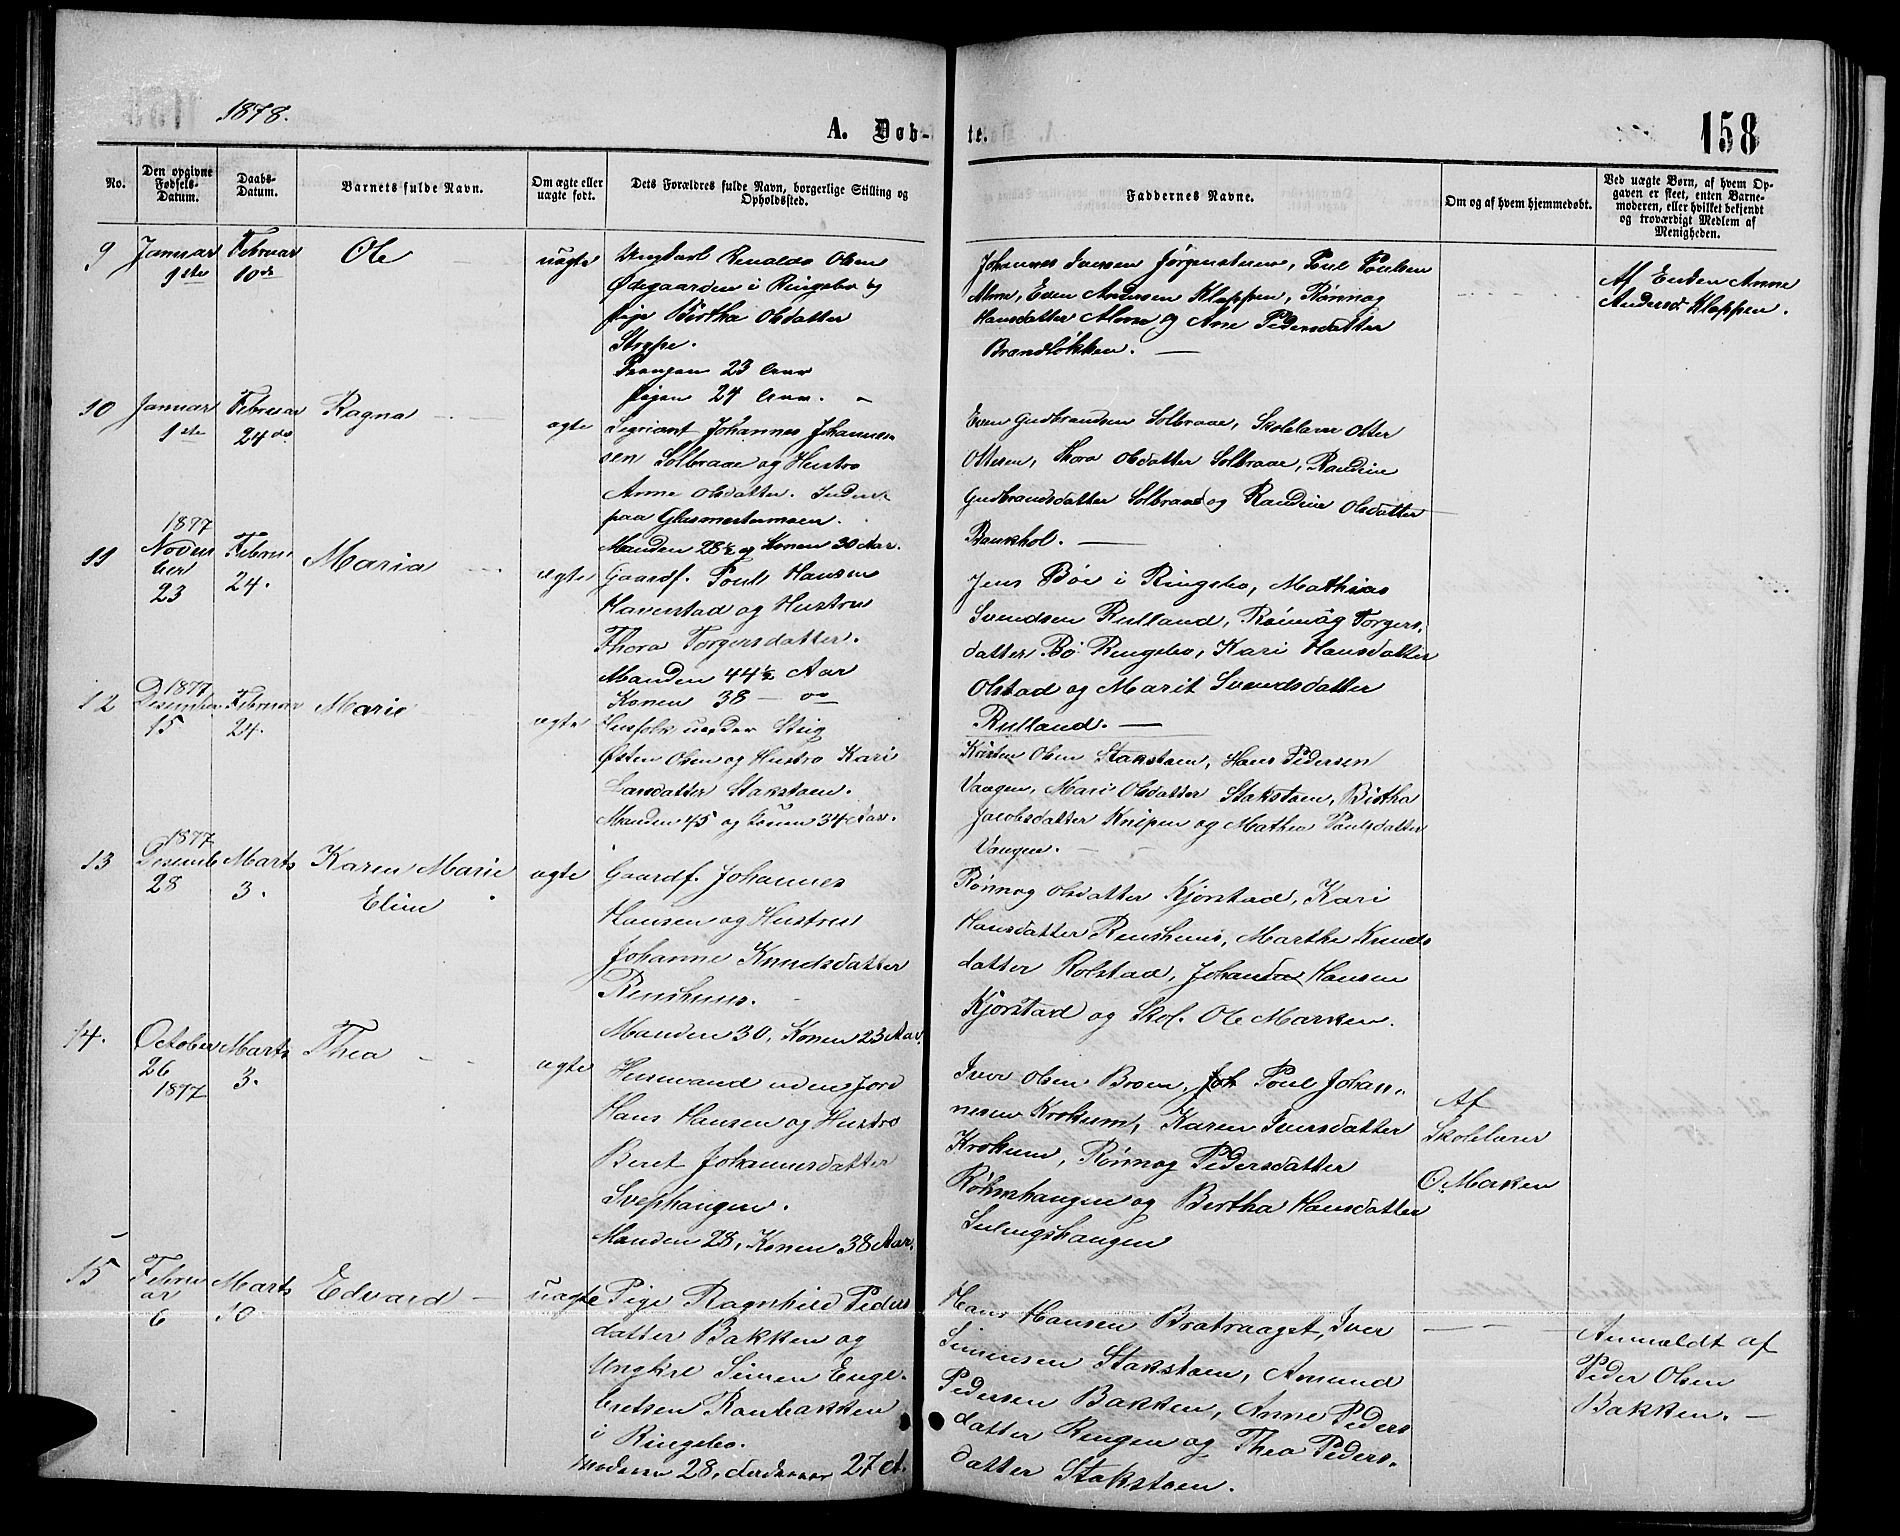 1878.
A. Døb-
te.
158
No.
Den opgivne
Fødsels-
Datum.
Daabs-
Datum.
Barnets fulde Navn.
Om ægte eller
uægte født.
Dets Forældres fulde Navn, borgerlige Stilling og
Opholdssted.
Faddernes Navne.
Om og af hvem hjemmedøbt.
Ved uægte Børn, af hvem Op-
gaven er skeet, enten Barne-
moderen, eller hvilket bekjendt
og troværdigt Medlem af
Menigheden.
9
Januar
1ste
Februar
10de
Ole
uægte
Ungkarl Olsen
Ødegaarden i Ringebo og
Pige Birtha Olsdatter
Strype.
23 Aar
Pigen 24 Aar.
Johannes Iversen Jørgenstuen, Poul Poulsen
Alme, Even Andersen Kleppen, Rønnog
Hansdatter Alme og Ane Pedersdatter
Brandløkken. —
Af Enken Anne
Andersd. Kleppen.
10
Januar
1ste
Februar
24de
Ragna
ægte
Sergiant Johannes Johannes-
sen Solbraae og Hustro
Anne Olsdatter.
paa Glasmestermoen.
Manden 28½ og Konen 30 Aar.
Even Gudbrandsen Solbraae, Skolelærer Otter
Ottesen, Thora Olsdatter Solbraae, Randine
Gudbrandsdatter Solbraae og Randine Olsdatter
Baukhol. —
11
1877
Novem
ber
23
Februar
24.
Maria
ægte
Gaardf. Poul Hansen
Haverstad og Hustru
Thora Torgersdatter.
Manden 44½ Aar
Konen 38 —
Jens Böe i Ringebo, Mathias
Svendsen Rulland, Rönnög Torgers-
datter Bö Ringebo, Kari Hansdatter
Olstad og Marit Svendsdatter
Rulland. —
12
1877
Desember
15
Februar
24.
Marie
ægte
Husfolk under Stig
Østen Olsen og Hustro Kari
Larsdatter Stakstoen.
Manden 45 og Konen 34 Aar.
Olsen Stakstoen, Hans Pedersen
Vangen, Mari Olsdatter Stakstoen, Birtha
Jacobsdatter Knipen og Mathea Poulsdatter
Vangen. —
13
1877
Desemb
28
Marts
3.
Karen Marie
Eline
ægte
Gaardf. Johannes
Hansen og Hustru
Johanne Knudsdatter
Renshuus.
Manden 30, Konen 23 Aar.
Rønnog Olsdatter Kjørstad, Kari
Hansdatter Renshuus, Marthe Knuds
datter Rolstad, Hansen
Kjørstad og Skol. Ole Marken.
14.
October
26
1877
Marts
3.
Thea
ægte
Husmand uden Jord
Hans Hansen og Hustro
Beret Johannesdatter
Svephaugen.
Manden 28, Konen 38 Aar.
Iver Olsen Broen, Poul Johan-
nesen Krokum, Karen Iversdatter
Krokum, Rønnog Pedersdatter
og Bertha Hansdatter
Af
Skolelærer
O. Marken
15
Febru
ar
6
Marts
10
Edvard —
uægte
Pige Ragnhild Peders
datter Bakken og
Ungkrl Simen Enge-
bretsen Raubakken
i Ringebo.
Moderen 28, 27 A.
Hans Hansen Bratvaaget, Iver
Simensen Stakstoen, Amund
Pedersen Bakken, Anne Peders
datter Ringen og Thea Peders-
datter Stakstoen.
Anmeldt af
Peder Olsen
Bakken. —